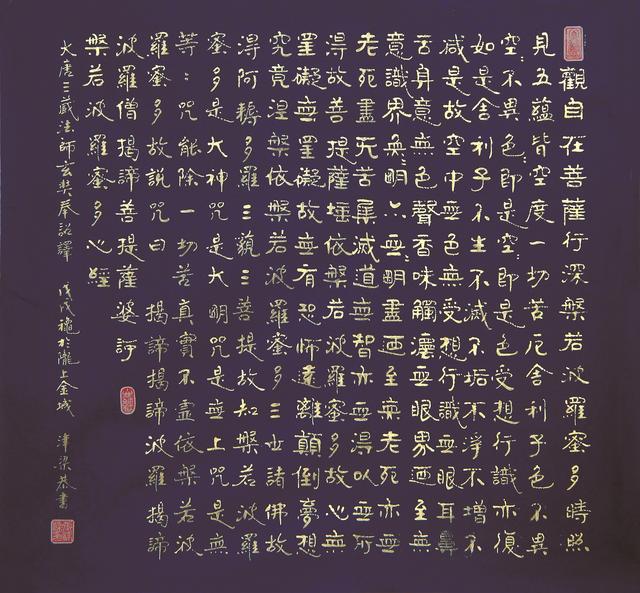 觀自在菩薩行深槃若波羅蜜多時照
見五蘊皆空度一切苦厄舍利子色不異
空:不異色:即是空:即是色受想行識亦復
如是舍利子不生不滅不垢不淨不增不
減是故空中無色無受想行識無眼耳鼻
舌身意無色聲香味觸灋無眼界迺至無
意識界無:明亦無:明盡迺至無老死亦無
老死盡无苦集滅道無智亦無得以無所
得故菩提薩埵依槃若波羅蜜多故心無
罣礙無罣礙故無有恐怖遠離顛倒夢想
究竟涅槃依槃若波羅蜜多三世諸佛故
得阿耨多羅三藐三菩提故知槃若波羅
蜜多是大神咒是大明咒是無上咒是無
等:咒能除一切苦真實不虛依槃若波
羅蜜多故說咒曰 揭諦揭諦波羅揭諦
波羅僧揭諦菩提薩婆訶
槃若波羅蜜多心經
大唐三藏法師玄奘奉詔譯 戊戌穐於隴上金城 津梁恭書